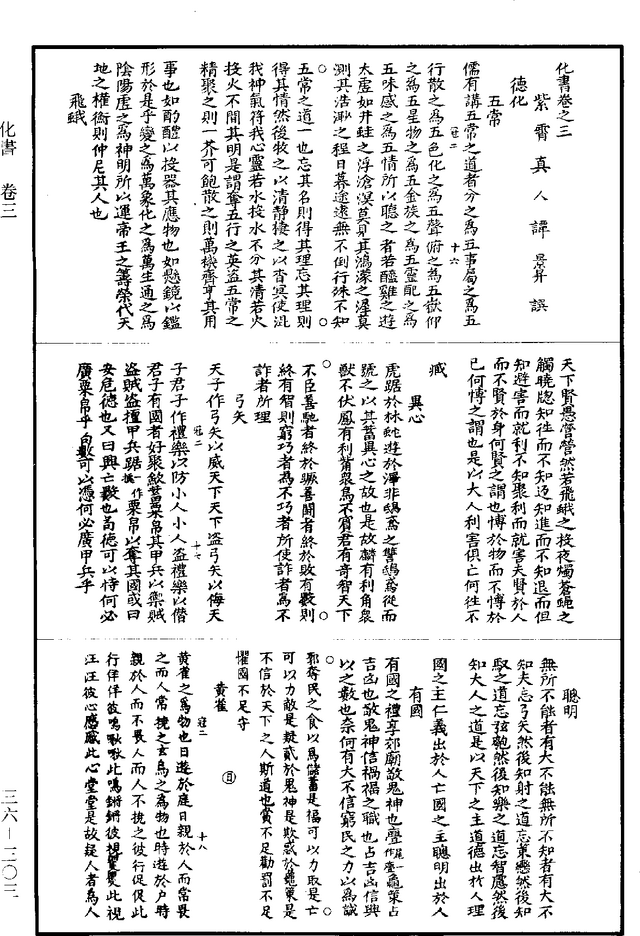 化書卷之三
紫霄真人譚景昇譔
德化
五常
儒有講五常之道者分之為五事屬之為五
行散之為五色化之為五聲俯之為五嶽仰
之為五星物之為五金族之為五靈配之為
五味感之為五情所以聽之者若醯雞之遊
太虛如井蛙之浮滄溟莫見其鴻濛之涯莫
測其浩渺之程日暮途遠無不倒行殊不知
五常之道一也忘其名則得其理忘其理則
得其情然後牧之以清靜棲之以杳冥使混
我神氣符我心靈若水投水不分其清若火
投火不間其明是謂奪五行之英盜五常之
精聚之則一芥可飽散之則萬機齊亨其用
事也如酌醴以投器其應物也如懸鏡以鑑
形於是乎變之為萬象化之為萬生通之為
陰陽虛之為神明所以運帝王之籌策代天
地之權衡則仲尼其人也
飛蛾
天下賢愚營營然若飛蛾之投夜燭蒼蠅之
觸曉牕知往而不知返知進而不知退而但
知避害而就利不知聚利而就害夫賢於人
而不賢於身何賢之謂也博於物而不博於
己何博之謂也是以大人利害俱亡何往不
臧
異心
虎踞於林蛇遊於澤非鴟鳶之讎鴟鳶從而
號之以其蓄異心之故也是故麟有利角衆
獸不伏鳳有利觜衆鳥不賓君有奇智天下
不臣善馳者終於蹶善鬭者終於敗有數則
終有智則窮巧者為不巧者所使詐者為不
詐者所理
弓矢
天子作弓矢以威天下天下盜弓矢以侮天
子君子作禮樂以防小人小人盜禮樂以僭
君子有國者好聚歛蓄粟帛具甲兵以禦賊
盜賊盜擅甲兵踞粟帛以奪其國或曰
安危德也又曰興亡數也苟德可以恃何必
廣粟帛乎苟數可以憑何必廣甲兵乎
聰明
無所不能者有大不能無所不知者有大不
知夫忘弓矢然後知射之道忘策轡然後知
馭之道忘弦匏然後知樂之道忘智慮然後
知大人之道是以天下之主道德出於人理
國之主仁義出於人亡國之主聰明出於人
有國
有國之禮享郊廟敬鬼神也龜策占
吉凶也敬鬼神信禍福之職也占吉凶信興
亡之數也奈何有大不信窮民之力以為城
郭奪民之食以為儲蓄是福可以力取是亡
可以力敵是疑貳於鬼神是欺惑於龜策是
不信於天下之人斯道也賞不足勸罰不足
懼國不足守
黃雀
黃雀之為物也日遊於庭日親於人而常畏
之而人常撓之玄鳥之為物也時遊於戶時
親於人而不畏人而人不撓之彼行促促此
行佯佯彼鳴啾啾此鳴鏘鏘彼視矍矍此視
汪汪彼心慼慼此心堂堂是故疑人者為人
化書 卷三
三六－三〇三